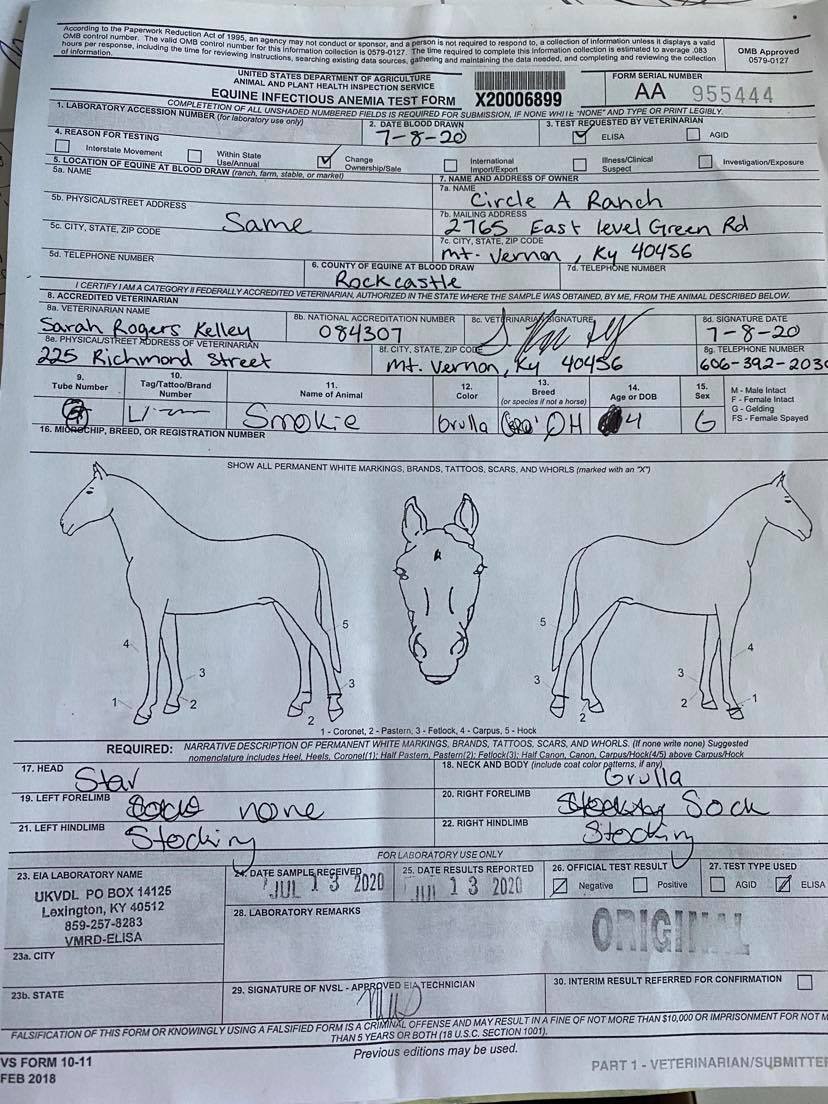 According to the Paperwork Reduction Act of 1995, an agency may not conduct or sponsor, and a person is not required to respond to, a collection of information unless it displays a valid
OMB control number. The valid OMB control number for this information collection is 0579-0127. The time required to complete this information collection is estimated to average .083
hours per response, including the time for reviewing instructions, searching existing data sources, gathering and maintaining the data needed, and completing and reviewing the collection
of information.
OMB Approved
0579-0127
UNITED STATES DEPARTMENT OF AGRICULTURE
ANIMAL AND PLANT HEALTH INSPECTION SERVICE
EQUINE INFECTIOUS ANEMIA TEST FORM
X20006899
FORM SERIAL NUMBER
AA 955444
COMPLETETION OF ALL UNSHADED NUMBERED FIELDS IS REQUIRED FOR SUBMISSION, IF NONE WHITE "NONE" AND TYPE OR PRINT LEGIBLY.
1. LABORATORY ACCESSION NUMBER (for laboratory use only)
2. DATE BLOOD DRAWN
7-8-20
3. TEST REQUESTED BY VETERINARIAN
ELISA
AGID
4. REASON FOR TESTING
Interstate Movement
Within State
Use/Annual
Change
Ownership/Sale
International
Import/Export
Illness/Clinical
Suspect
Investigation/Exposure
5. LOCATION OF EQUINE AT BLOOD DRAW (ranch, farm, stable, or market)
5a. NAME
5b. PHYSICAL/STREET ADDRESS
5c. CITY, STATE, ZIP CODE
Same
5d. TELEPHONE NUMBER
6. COUNTY OF EQUINE AT BLOOD DRAW
Rockcastle
7. NAME AND ADDRESS OF OWNER
7a. NAME
Circle A Ranch
7b. MAILING ADDRESS
2765 East level Green Rd
7c. CITY, STATE, ZIP CODE
mt. Vernon, Ky 40456
7d. TELEPHONE NUMBER
I CERTIFY I AM A CATEGORY II FEDERALLY ACCREDITED VETERINARIAN, AUTHORIZED IN THE STATE WHERE THE SAMPLE WAS OBTAINED, BY ME, FROM THE ANIMAL DESCRIBED BELOW.
8. ACCREDITED VETERINARIAN
8a. VETERINARIAN NAME
Sarah Rogers Kelley
8b. NATIONAL ACCREDITATION NUMBER
084307
8c. VETERINARIAN SIGNATURE
8d. SIGNATURE DATE
7-8-20
8e. PHYSICAL/STREET ADDRESS OF VETERINARIAN
225 Richmond Street
8f. CITY, STATE, ZIP CODE
mt. Vernon, Ky 40456
8g. TELEPHONE NUMBER
606-392-2030
9.
Tube Number
10.
Tag/Tattoo/Brand
Number
11.
Name of Animal
Smokie
12.
Color
Grulla
13.
Breed
(or species if not a horse)
QH
14.
Age or DOB
4
15.
Sex
G
M - Male Intact
F - Female Intact
G - Gelding
FS - Female Spayed
16. MICROCHIP, BREED, OR REGISTRATION NUMBER
SHOW ALL PERMANENT WHITE MARKINGS, BRANDS, TATTOOS, SCARS, AND WHORLS (marked with an "X")
5
5
4
4
3
3
3
3
1
2
2
2
2
1
1 - Coronet, 2 - Pastern, 3 - Fetlock, 4 - Carpus, 5 - Hock
REQUIRED: NARRATIVE DESCRIPTION OF PERMANENT WHITE MARKINGS, BRANDS, TATTOOS, SCARS, AND WHORLS. (If none write none) Suggested
nomenclature includes Heel, Heels, Coronet(1); Half Pastern, Pastern(2); Fetlock(3); Half Canon, Canon, Carpus/Hock(4/5) above Carpus/Hock
17. HEAD
Star
18. NECK AND BODY (include coat color patterns, if any)
Grulla
19. LEFT FORELIMB
none
20. RIGHT FORELIMB
Sock
21. LEFT HINDLIMB
Stocking
22. RIGHT HINDLIMB
Stocking
FOR LABORATORY USE ONLY
23. EIA LABORATORY NAME
UKVDL PO BOX 14125
Lexington, KY 40512
859-257-8283
VMRD-ELISA
24. DATE SAMPLE RECEIVED
JUL 13 2020
25. DATE RESULTS REPORTED
JUL 13 2020
26. OFFICIAL TEST RESULT
Negative
Positive
27. TEST TYPE USED
AGID
ELISA
28. LABORATORY REMARKS
ORIGINAL
23a. CITY
23b. STATE
29. SIGNATURE OF NVSL - APPROVED EIA TECHNICIAN
30. INTERIM RESULT REFERRED FOR CONFIRMATION
FALSIFICATION OF THIS FORM OR KNOWINGLY USING A FALSIFIED FORM IS A CRIMINAL OFFENSE AND MAY RESULT IN A FINE OF NOT MORE THAN $10,000 OR IMPRISONMENT FOR NOT M
THAN 5 YEARS OR BOTH (18 U.S.C. SECTION 1001).
VS FORM 10-11
FEB 2018
Previous editions may be used.
PART 1 - VETERINARIAN/SUBMITTER